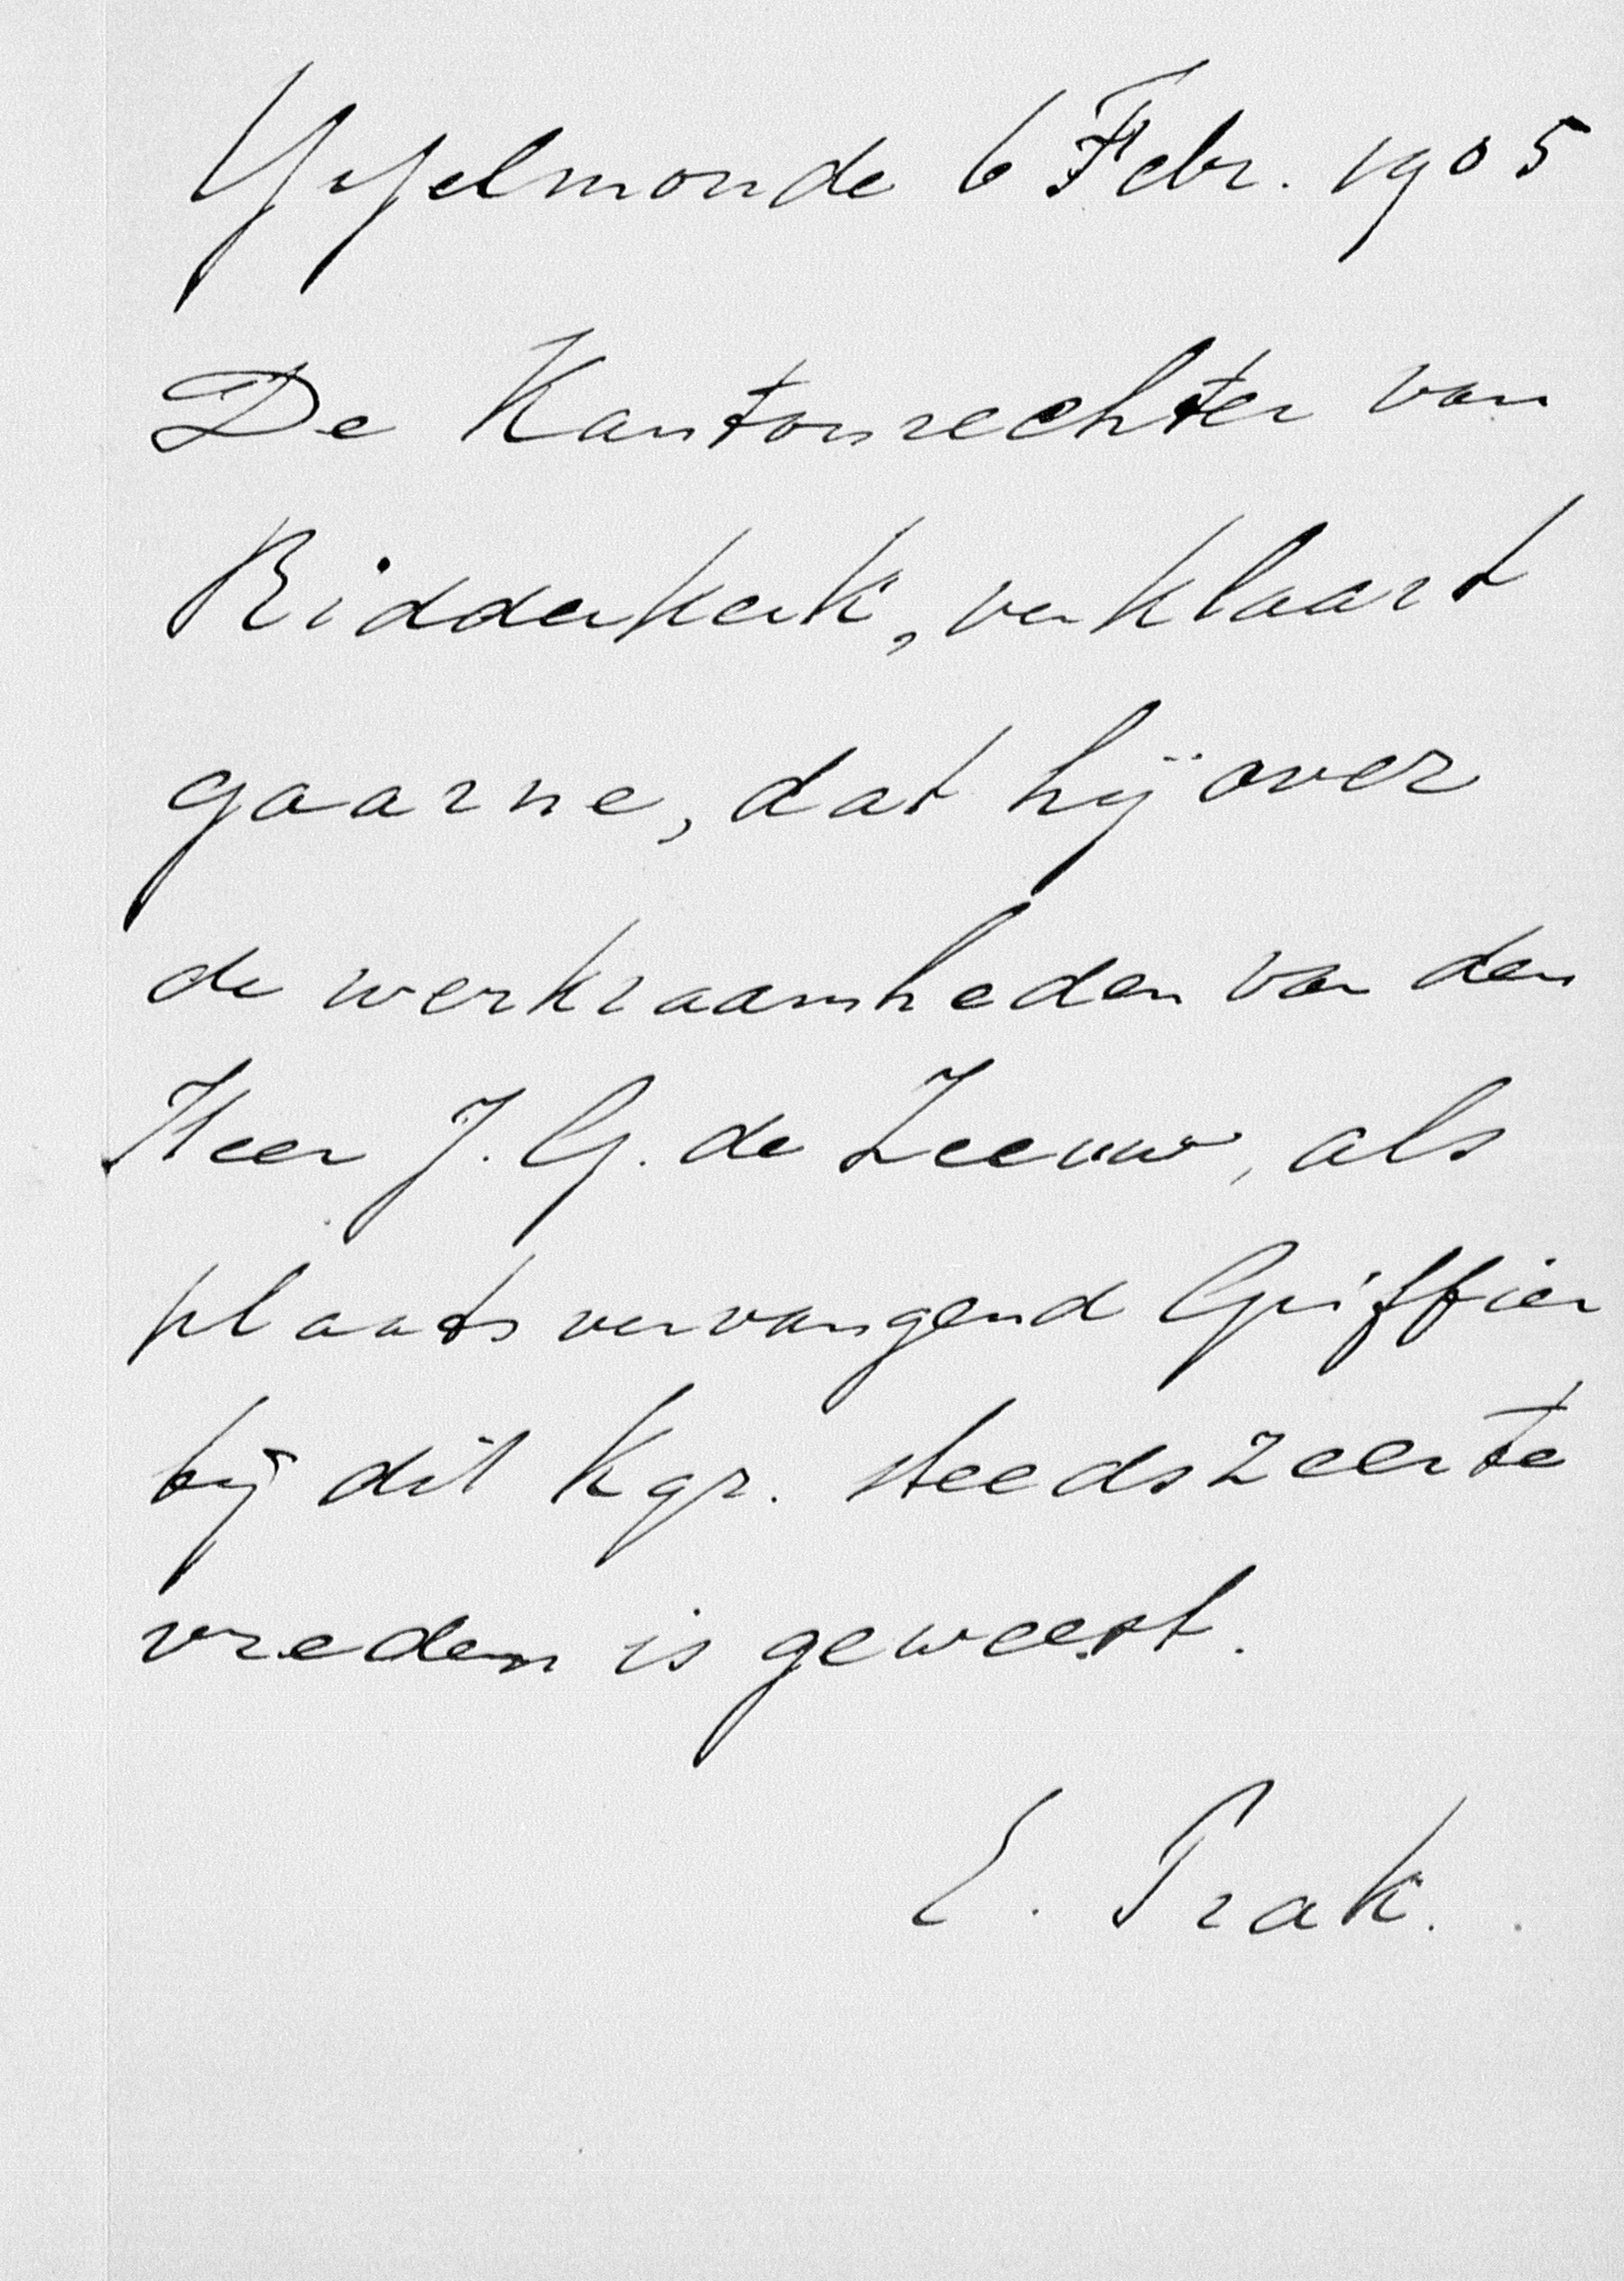 Ysselmonde 6 Febr. 1905
De Kantonrechter van
Ridderkerk, verklaart
gaarne, dat hij over
de werkzaamheden van den
Heer J. G. de Zeeuw, als
plaatsvervangend Griffier
bij dit Kgr. steeds zeer te
vreden is geweest.
E. Prak.